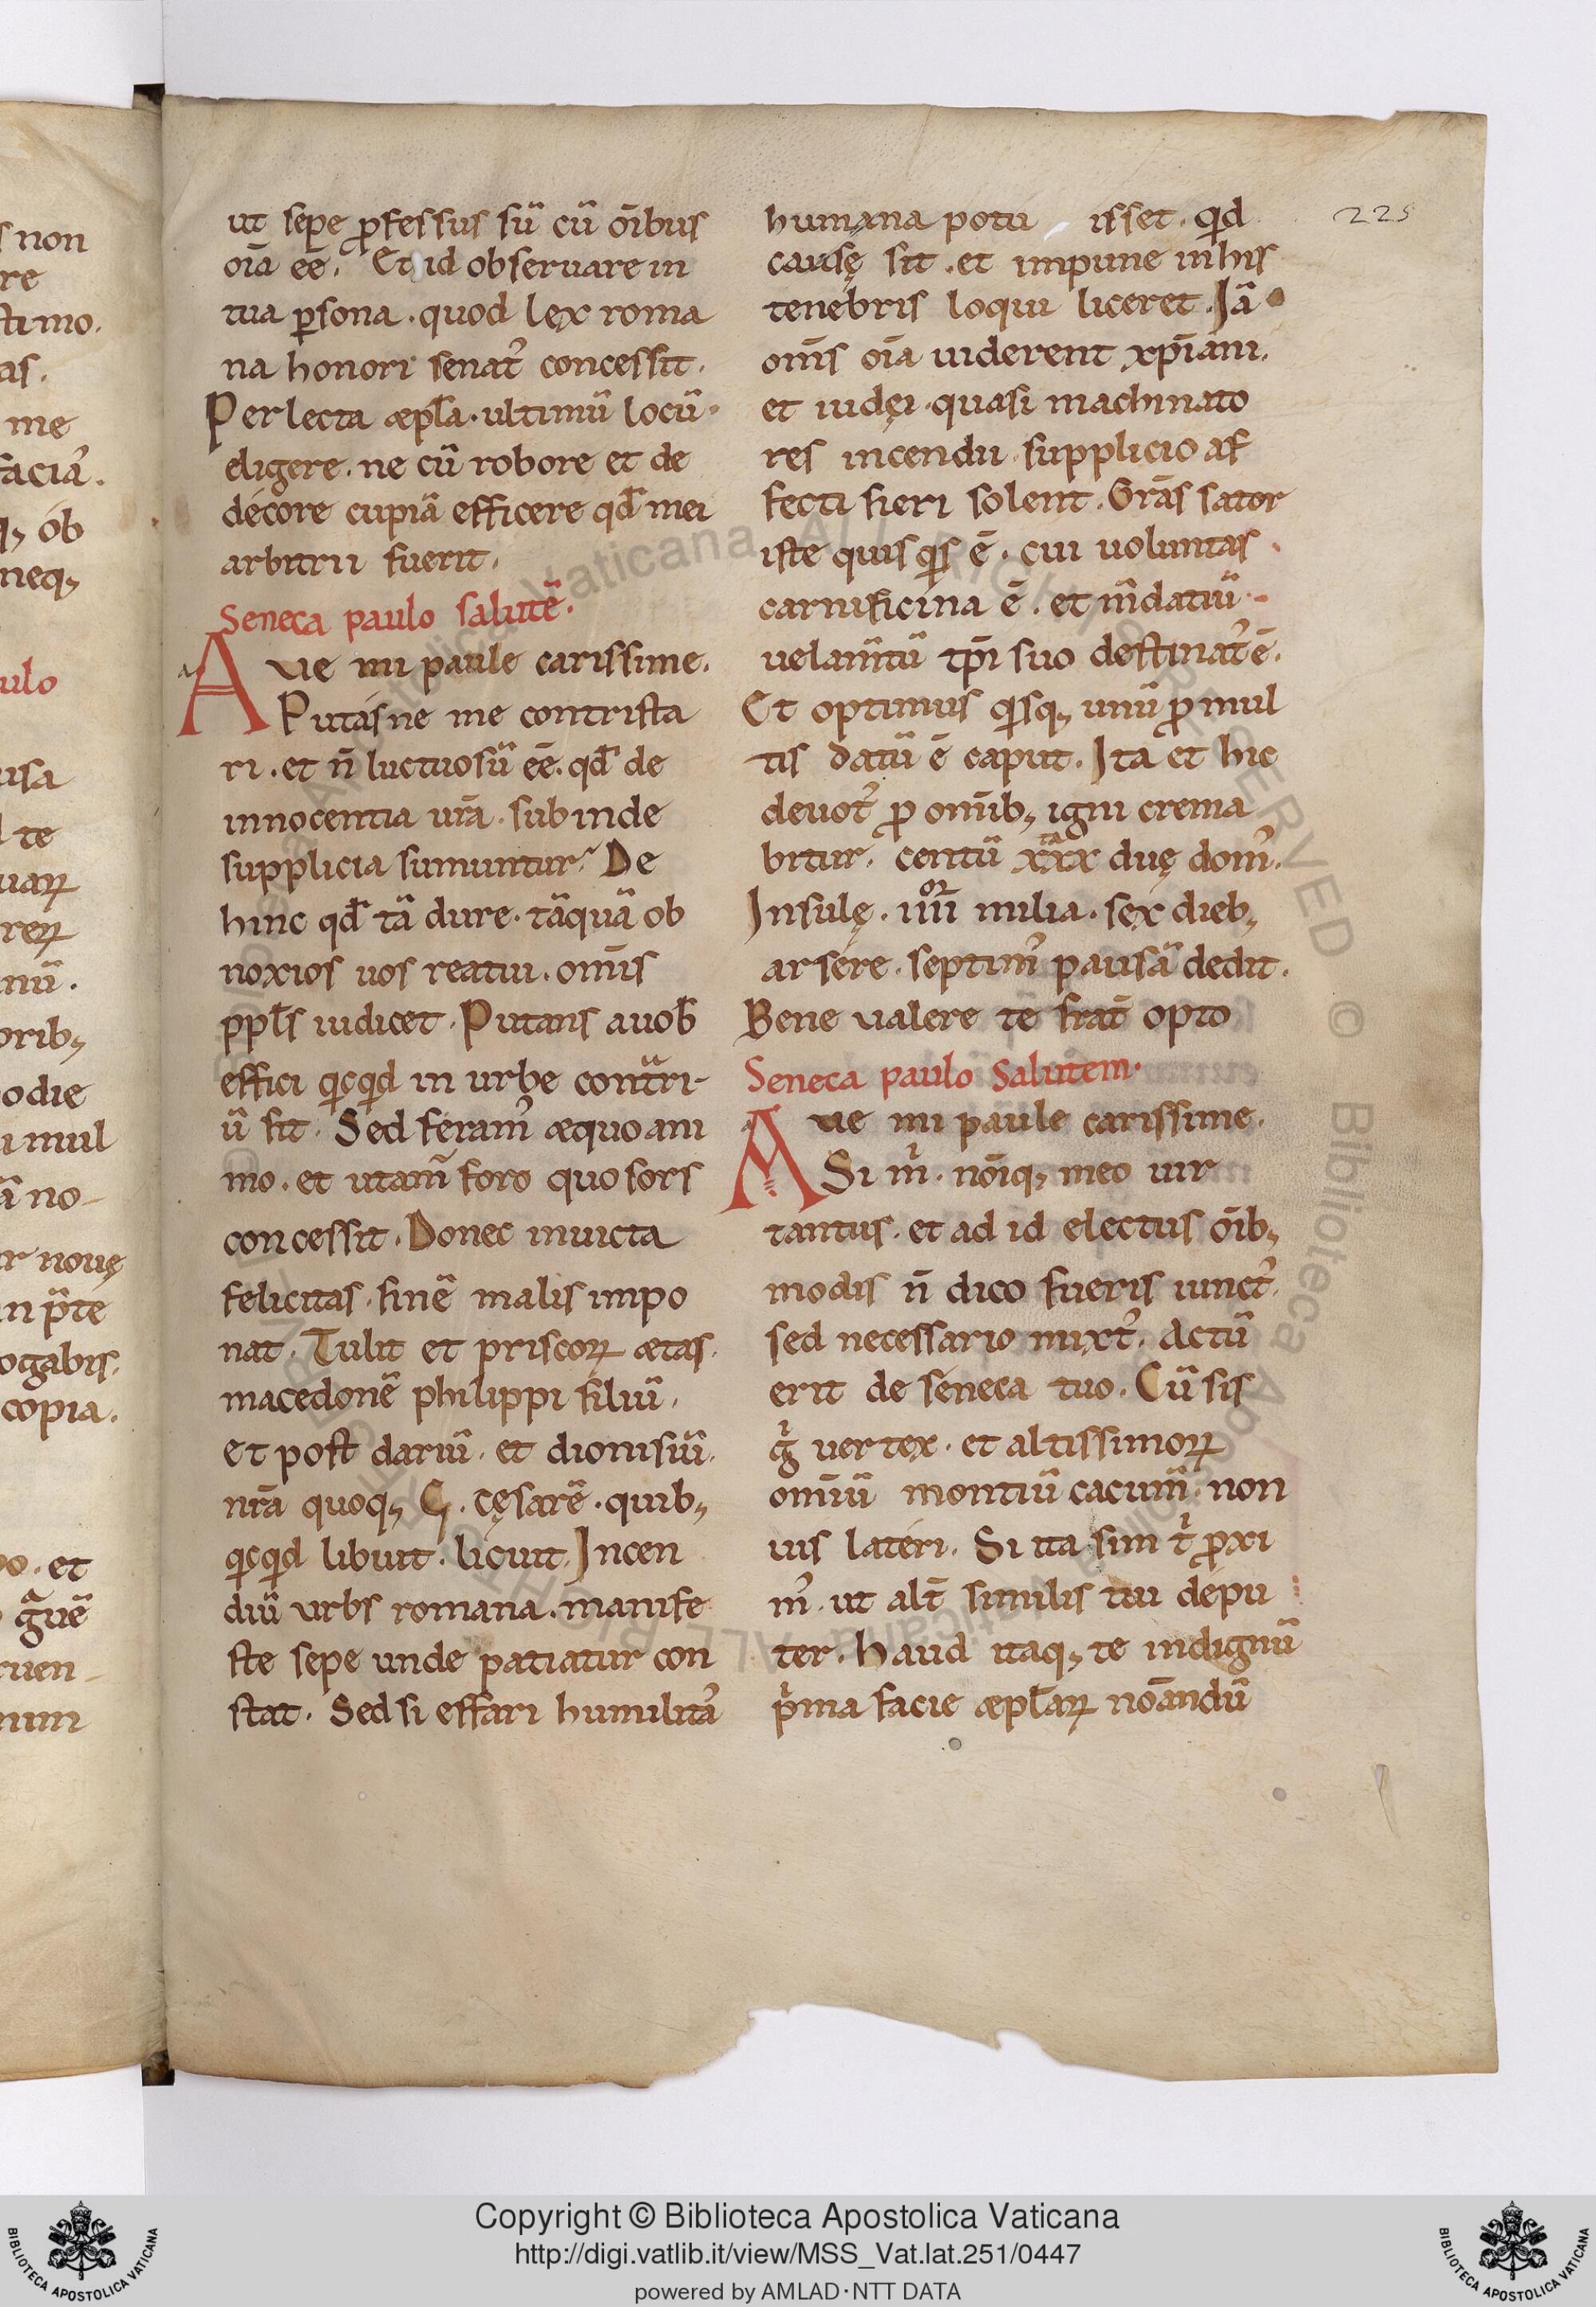 ut sepe ꝓfessus sū cū oībus
oīa eē. Et id obseruare in
tua ꝑsona. quod lex roma
na honori senat᷒ concessit.
Perlecta æpl̄a. ultimū locū.
eligere. ne cū robore et de
decore cupiā efficere qd̄ mei
arbitrii fuerit.
Seneca paulo salutē.
Aue mi paule carissime.
Putasne me contrista
ri. et n̄ luctuosū eē. qd̄ de
innocentia ur̄a. subinde
supplicia sumuntur? De
hinc qd̄ tā dure. tāquā ob
noxios uos reatui. om̄is
ppl̄s iudicet. Putans a uob̄
effici qcqd in urbe contrari
ū sit. Sed feram᷒ æquo ani
mo. et utam̄ foro quo sors
concessit. Donec inuicta
felicitas. finē malis impo
nat. Tulit et priscoꝝ ætas.
macedonē philippi filiū.
et post dariū. et dionisiū.
nr̄a quoqꝫ G. cęsarē. quibꝫ
qcqd libuit. licuit. Incen
diū urbs romana. manife
ste sepe unde patiatur con
stat. Sed si effari humilitā
humana potu isset. qd
causę sit. et impune in his
tenebris loqui liceret. Iā
om̄s oīa uiderent xp̄iani.
et iudęi. quasi machinato
res incendii. supplicio af
fecti fieri solent. Grās sator
iste quisqs ē. cui uoluntas
carnificina ē. et m̄datiū
uelam̄tū tp̄i suo destinat᷒ ē.
Et optimus qsqꝫ unū ꝓ mul
tis datū ē caput. Ita et hic
deuot᷒ ꝓ om̄ibꝫ igni crema
bitur. centū xxx duę dom᷒.
Insulę. iiii milia. sex diebꝫ
arsere. septim᷒ pausā dedit.
Bene ualere te frat̄ opto
Seneca paulo Salutem.
Aue mi paule carissime.
Si m. noīqꝫ meo uir
tantus. et ad id electus oībꝫ
modis n̄ dico fueris iunct᷒.
sed necessario mixt᷒. actū
erit de seneca tuo. Cū sis
g uertex. et altissimoꝝ
om̄iū montiū cacum̄. non
uis lateri. Si ita sim t ꝓxi
m᷒. ut alt̄ similis tui depu
ter. haud itaqꝫ te indignū
pma facie æpl̄aꝝ noāndū
225
s non
re
stimo.
as.
me
facia᷒.
qꝫ ob
neqꝫ
ulo
usa
te
uaꝝ
reꝝ
nū.
oribꝫ
odie
i mul
ā no-
r nouę
ogabis.
copia.
o. et
ruen-
num
Copyright © Biblioteca Apostolica Vaticana
http://digi.vatlib.it/view/MSS_Vat.lat.251/0447
powered by AMLAD·NTT DATA
BIBLIOTECA APOSTOLICA VATICANA
BIBLIOTECA APOSTOLICA VATICANA